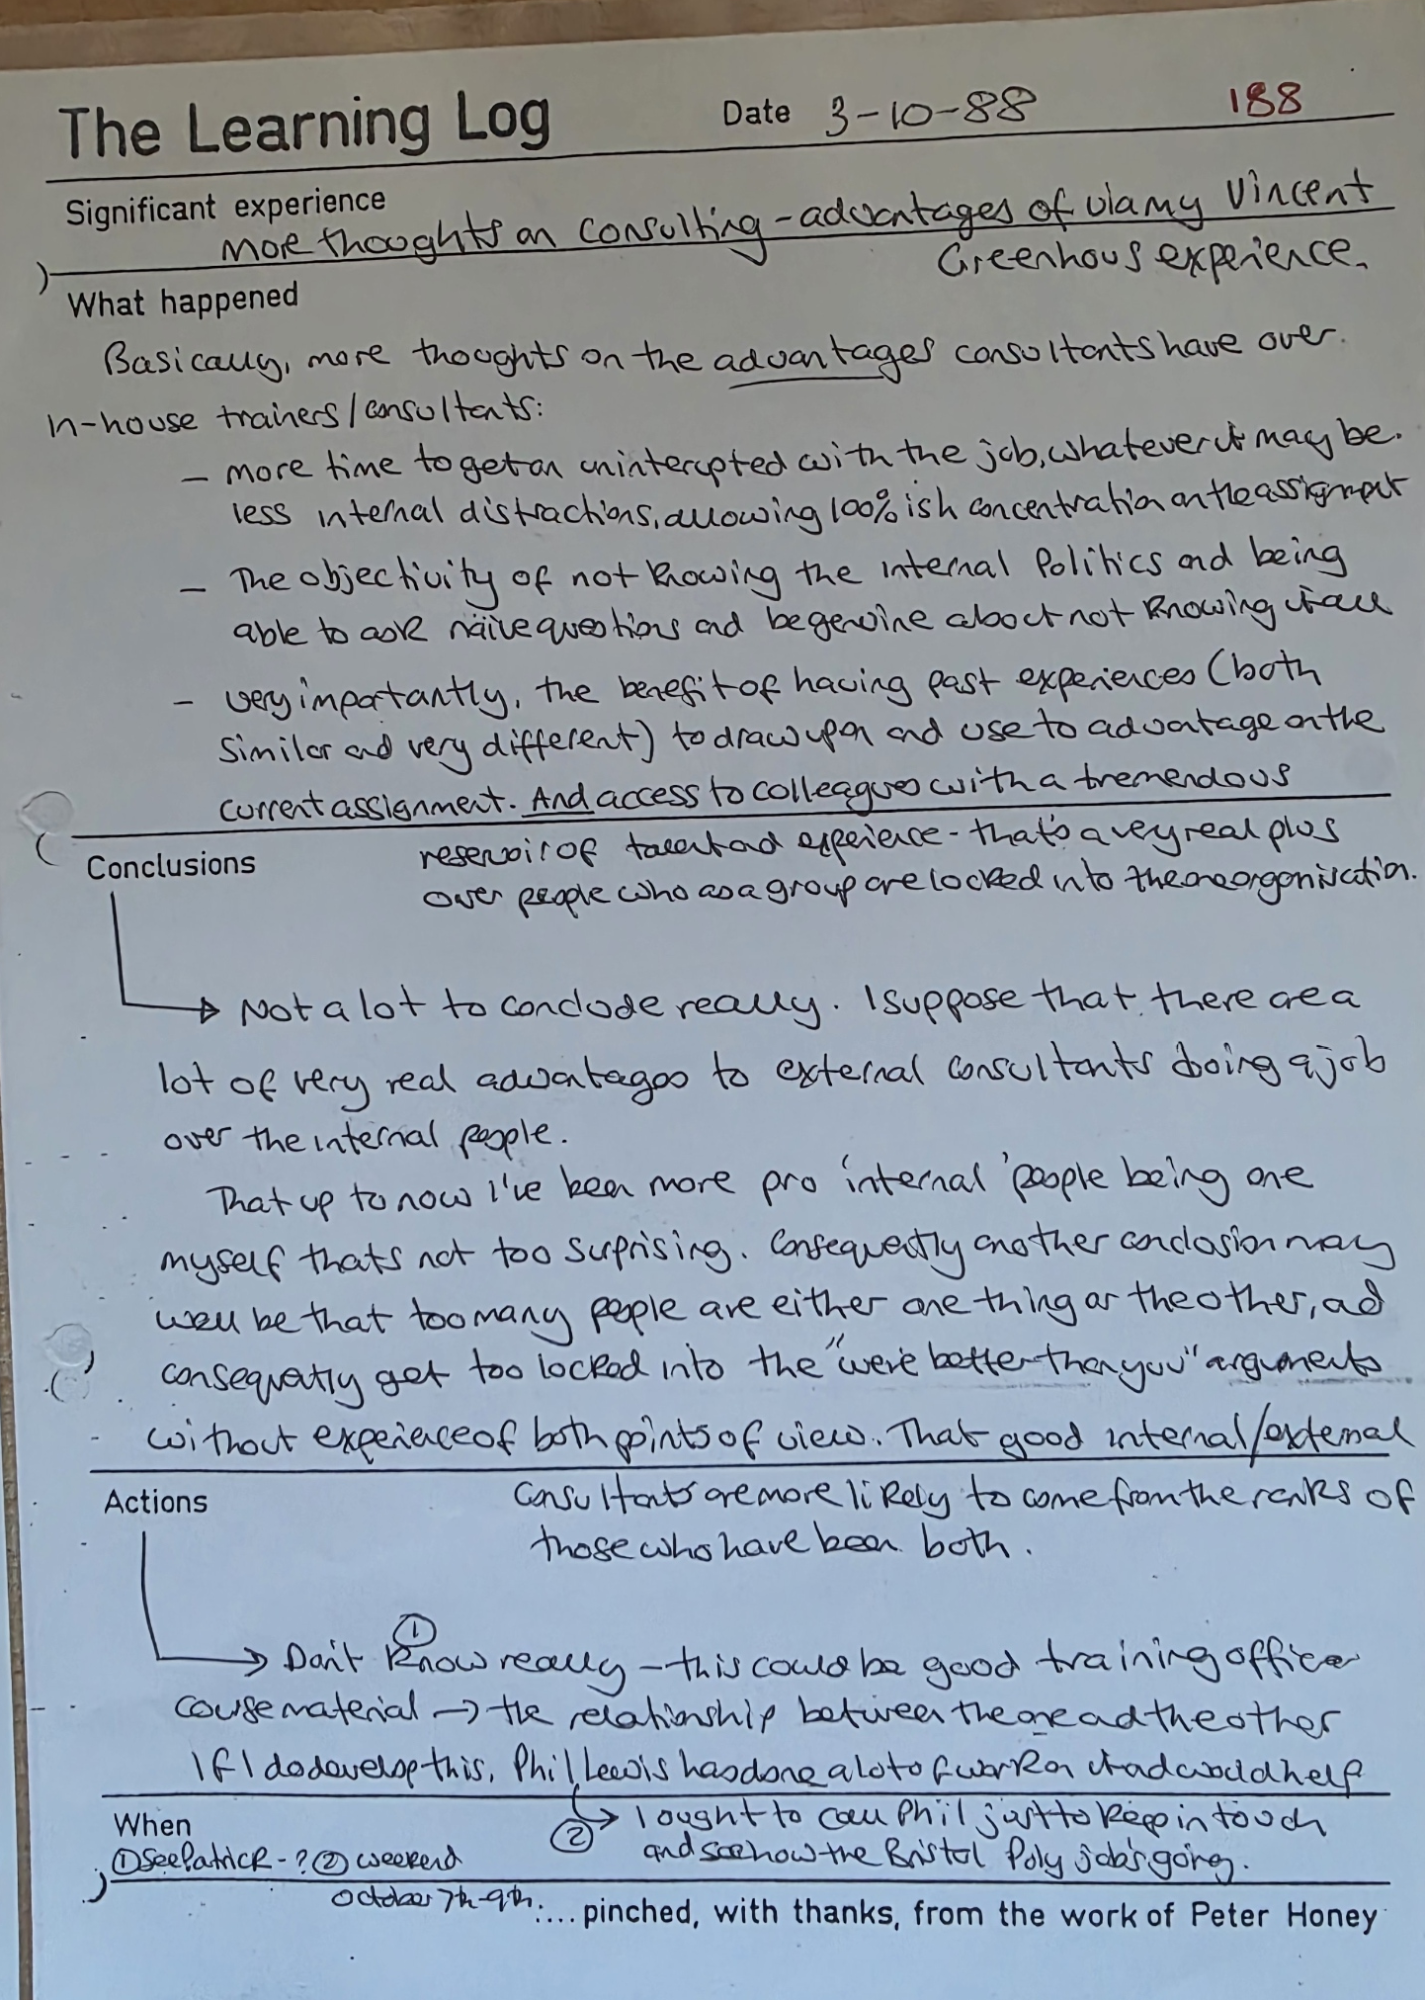 The Learning Log Date 3-10-88 188
Significant experience
More thoughts on consulting - advantages of via my Vincent
Greenhous experience.
What happened
Basically, more thoughts on the advantages consultants have over
in-house trainers/consultants:
- more time to get on uninterupted with the job, whatever it may be.
less internal distractions, allowing 100% ish concentration on the assignment
- The objectivity of not knowing the internal Politics and being
able to ask naive questions and be genuine about not knowing it all
- very importantly, the benefit of having past experiences (both
similar and very different) to draw upon and use to advantage on the
current assignment. And access to colleagues with a tremendous
reservoir of talent and experience - that's a very real plus
over people who as a group are locked into the one organisation.
Conclusions
→ Not a lot to conclude really. I suppose that there are a
lot of very real advantages to external consultants doing a job
over the internal people.
That up to now I've been more pro 'internal' people being one
myself thats not too surprising. Consequently another conclusion may
well be that too many people are either one thing or the other, and
consequently get too locked into the "we're better than you" arguments
without experience of both points of view. That good internal/external
consultants are more likely to come from the ranks of
those who have been both.
Actions
①
→ Don't know really - this could be good training officer
course material → the relationship between the one and the other
If I do develop this, Phil Lewis has done a lot of work on it and could help
② → I ought to call Phil just to keep in touch
and see how the Bristol Poly job's going.
When
① See Patrick - ? ② weekend
October 7th-9th
.... pinched, with thanks, from the work of Peter Honey